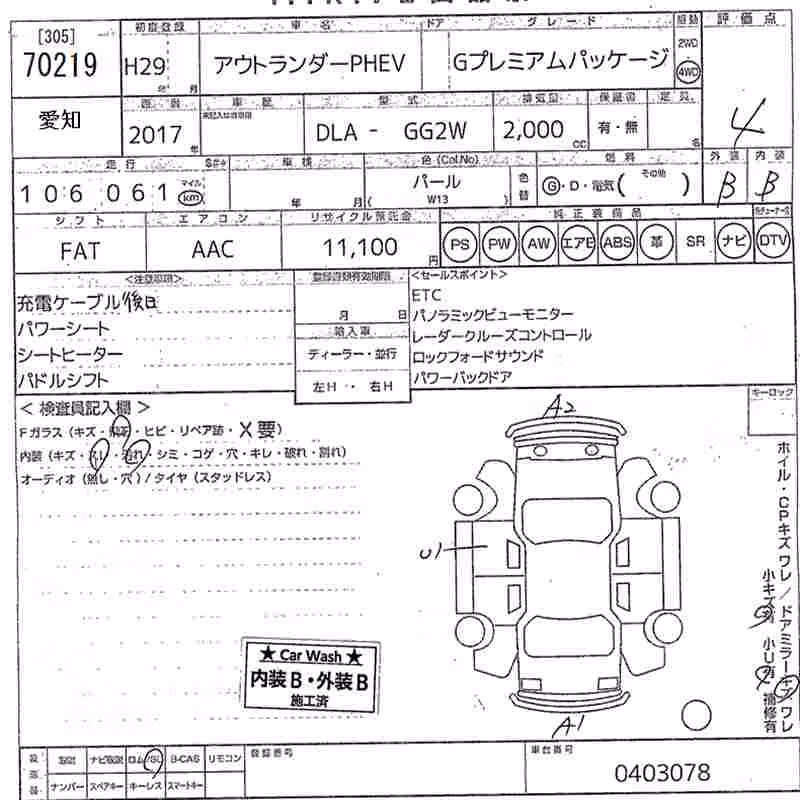 [305]
70219
初度登録
車名
ドア
グレード
駆動
評価点
H29
年
月
アウトランダーPHEV
Gプレミアムパッケージ
2WD
4WD
4
愛知
2017
年
車歴
型式
DLA - GG2W
排気量
2,000
CC
保証書
有・無
定員
名
走行
106 061
マイル
km
車検
年
月
色(Col.No)
パール
W13
色替
燃料
G・D・電気( その他 )
外装
内装
B
B
シフト
エアコン
リサイクル預託金
純正装備品
FAT
AAC
11,100
円
PS
PW
AW
エアB
ABS
革
SR
ナビ
DTV
<注意事項>
<セールスポイント>
充電ケーブル後日
パワーシート
シートヒーター
パドルシフト
月
日
輸入車
ディーラー・並行
左H ・ 右H
ETC
パノラミックビューモニター
レーダークルーズコントロール
ロックフォードサウンド
パワーバックドア
キーロック
<検査員記入欄>
Fガラス(キズ・飛石・ヒビ・リペア跡・X要)
内装(キズ・スレ・汚れ・シミ・コゲ・穴・キレ・破れ・割れ)
オーディオ(無し・穴)/タイヤ(スタッドレス)
A2
U1
A1
ホイル・CPキズワレ/ドアミラーキズワレ
小キズ有 小U有 補修有
★ Car Wash ★
内装B・外装B
施工済
ナビ取説
B-CAS
リモコン
登録番号
車台番号
ナンバー
スペアキー
キーレス
スマートキー
0403078